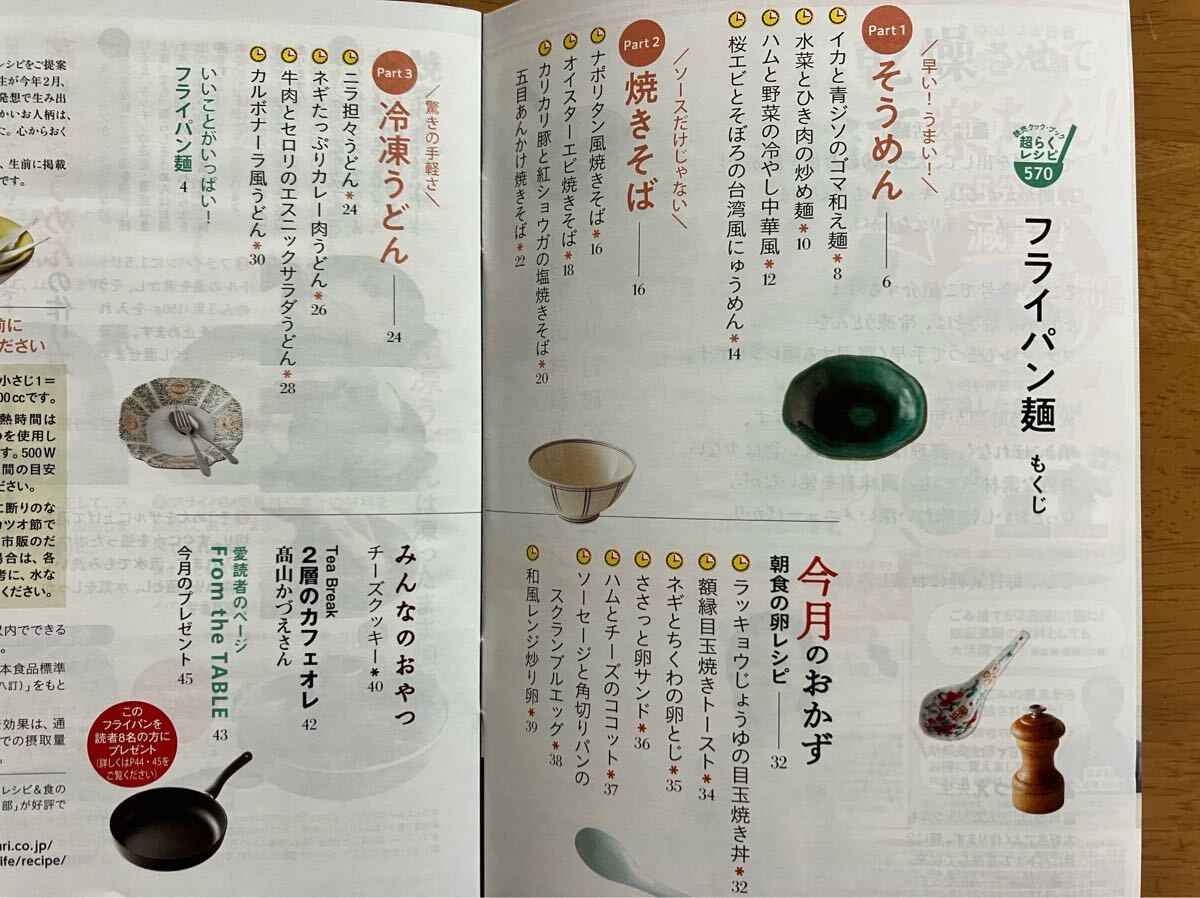 読売クック・ブック
超らく
レシピ
570
フライパン麺 もくじ
＼早い！うまい！／
Part 1
そうめん 6
イカと青ジソのゴマ和え麺＊8
水菜とひき肉の炒め麺＊10
ハムと野菜の冷やし中華風＊12
桜エビとそぼろの台湾風にゅうめん＊14
＼ソースだけじゃない／
Part 2
焼きそば 16
ナポリタン風焼きそば＊16
オイスターエビ焼きそば＊18
カリカリ豚と紅ショウガの塩焼きそば＊20
五目あんかけ焼きそば＊22
＼驚きの手軽さ／
Part 3
冷凍うどん 24
ニラ担々うどん＊24
ネギたっぷりカレー肉うどん＊26
牛肉とセロリのエスニックサラダうどん＊28
カルボナーラ風うどん＊30
いいことがいっぱい！
フライパン麺 4
今月のおかず
朝食の卵レシピ 32
ラッキョウじょうゆの目玉焼き丼＊32
額縁目玉焼きトースト＊34
ネギとちくわの卵とじ＊35
ささっと卵サンド＊36
ハムとチーズのココット＊37
ソーセージと角切りパンの
スクランブルエッグ＊38
和風レンジ炒り卵＊39
みんなのおやつ
チーズクッキー＊40
Tea Break
2層のカフェオレ 42
髙山かづえさん
愛読者のページ
From the TABLE 43
今月のプレゼント 45
この
フライパンを
読者8名の方に
プレゼント
(詳しくはP44・45を
ご覧ください)
レシピをご提案
生が今年2月、
発想で生み出
かいお人柄は、
た。心からおく
、生前に掲載
です。
前に
ださい
小さじ1＝
00ccです。
熱時間は
のを使用し
す。500W
間の目安
ださい。
に断りのな
カツオ節で
市販のだ
場合は、各
考に、水な
ください。
以内でできる
。
本食品標準
八訂)」をもと
効果は、通
での摂取量
。
レシピ＆食の
部」が好評で
ri.co.jp/
ife/recipe/